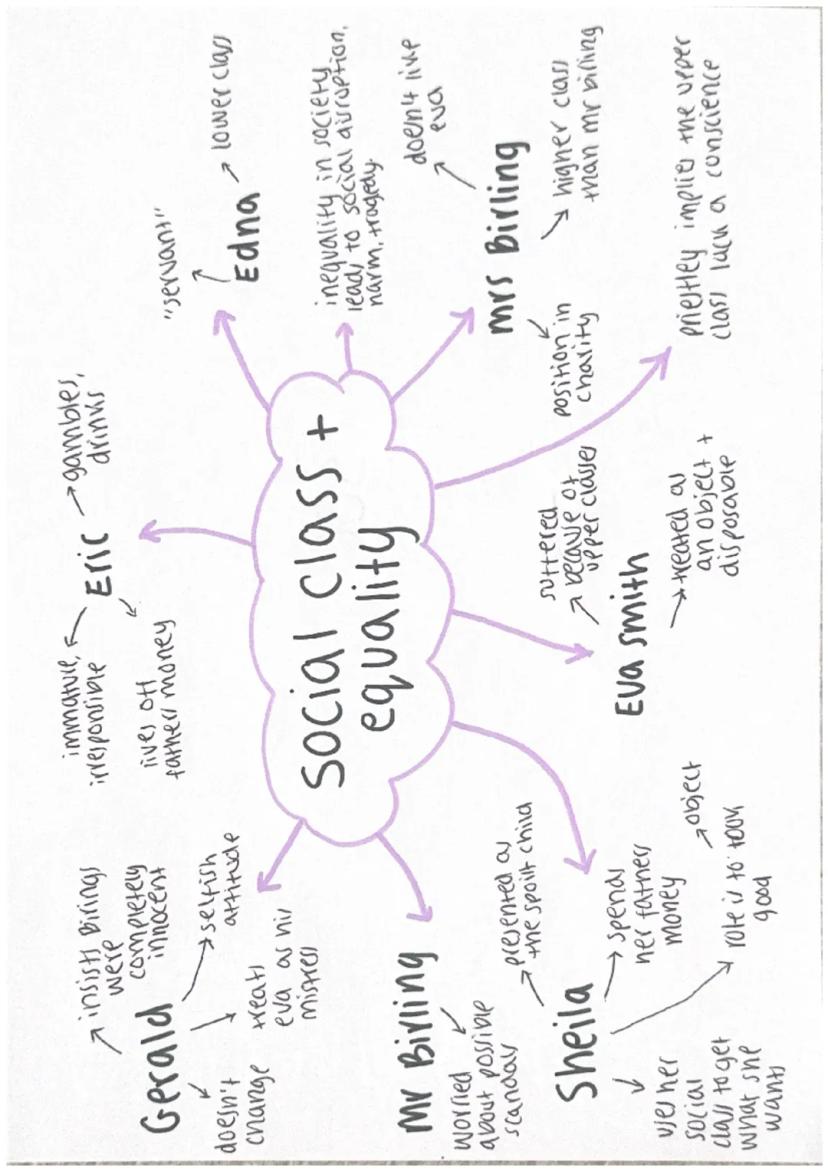 Social class +
equality
Gerald
insists birlings
were
completely
innocent
selfish
attitude
treats
eva as his
mistress
doesn't
change
Eric
immature,
irresponsible
gambles,
drinks
lives off
fathers money
Edna
"servant"
lower class
inequality in society
leads to social disruption,
harm, tragedy.
Mrs Birling
doesn't like
eva
higher class
than mr birling
position in
charity
priestley implies the upper
class lack a conscience
Eva smith
suffered
because of
upper classes
treated as
an object +
disposable
Sheila
presented as
the spoilt child
spends
her fathers
money
role is to look
good
object
uses her
social
class to get
what she
wants
Mr Birling
worried
about possible
scandals